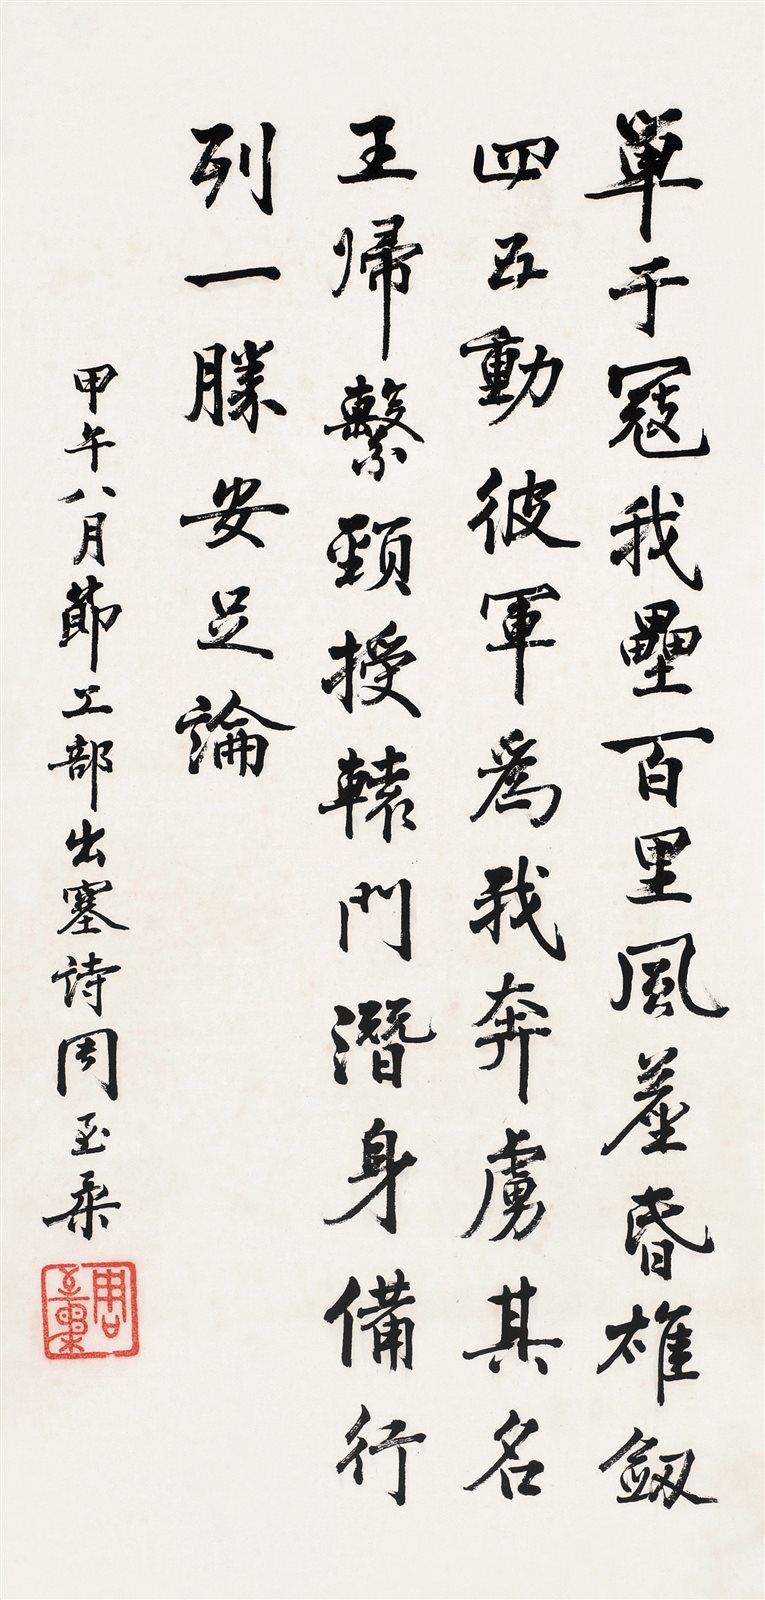 單于寇我壘百里風塵昏雄劔
四五動彼軍爲我奔虜其名
王歸繫頸授轅門潛身備行
列一勝安足論
甲午八月節工部出塞詩周至柔
周至柔